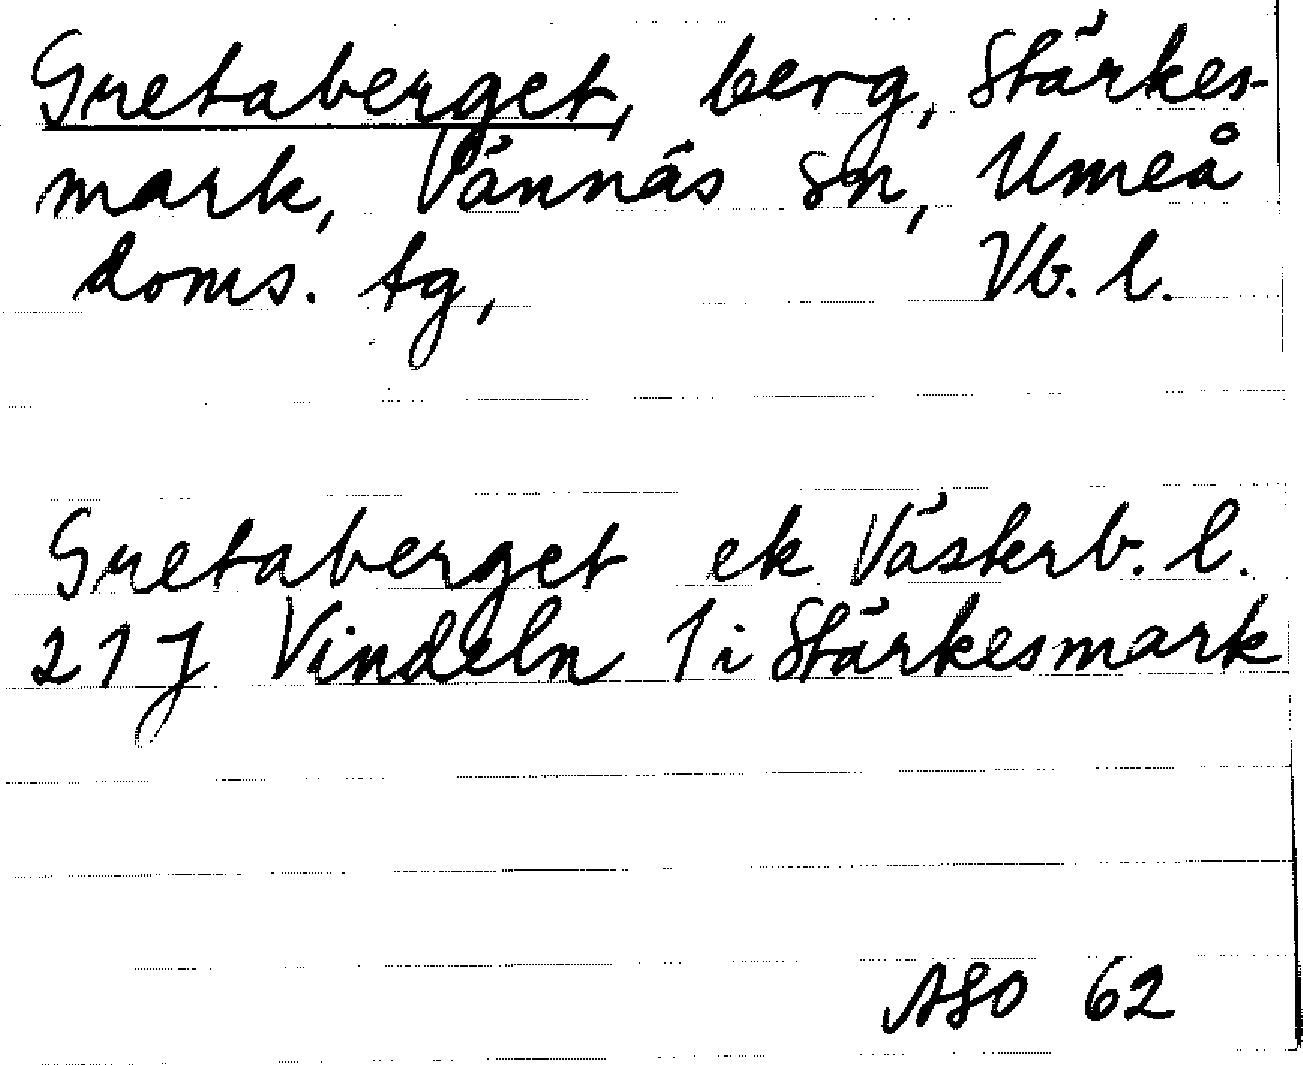 Gretaberget, berg, Stärkes-
mark, Vännäs sn, Umeå
doms. tg, Vb. l.
Gretaberget ek Västerb. l.
21 J Vindeln 1 i Stärkesmark
ASO 62